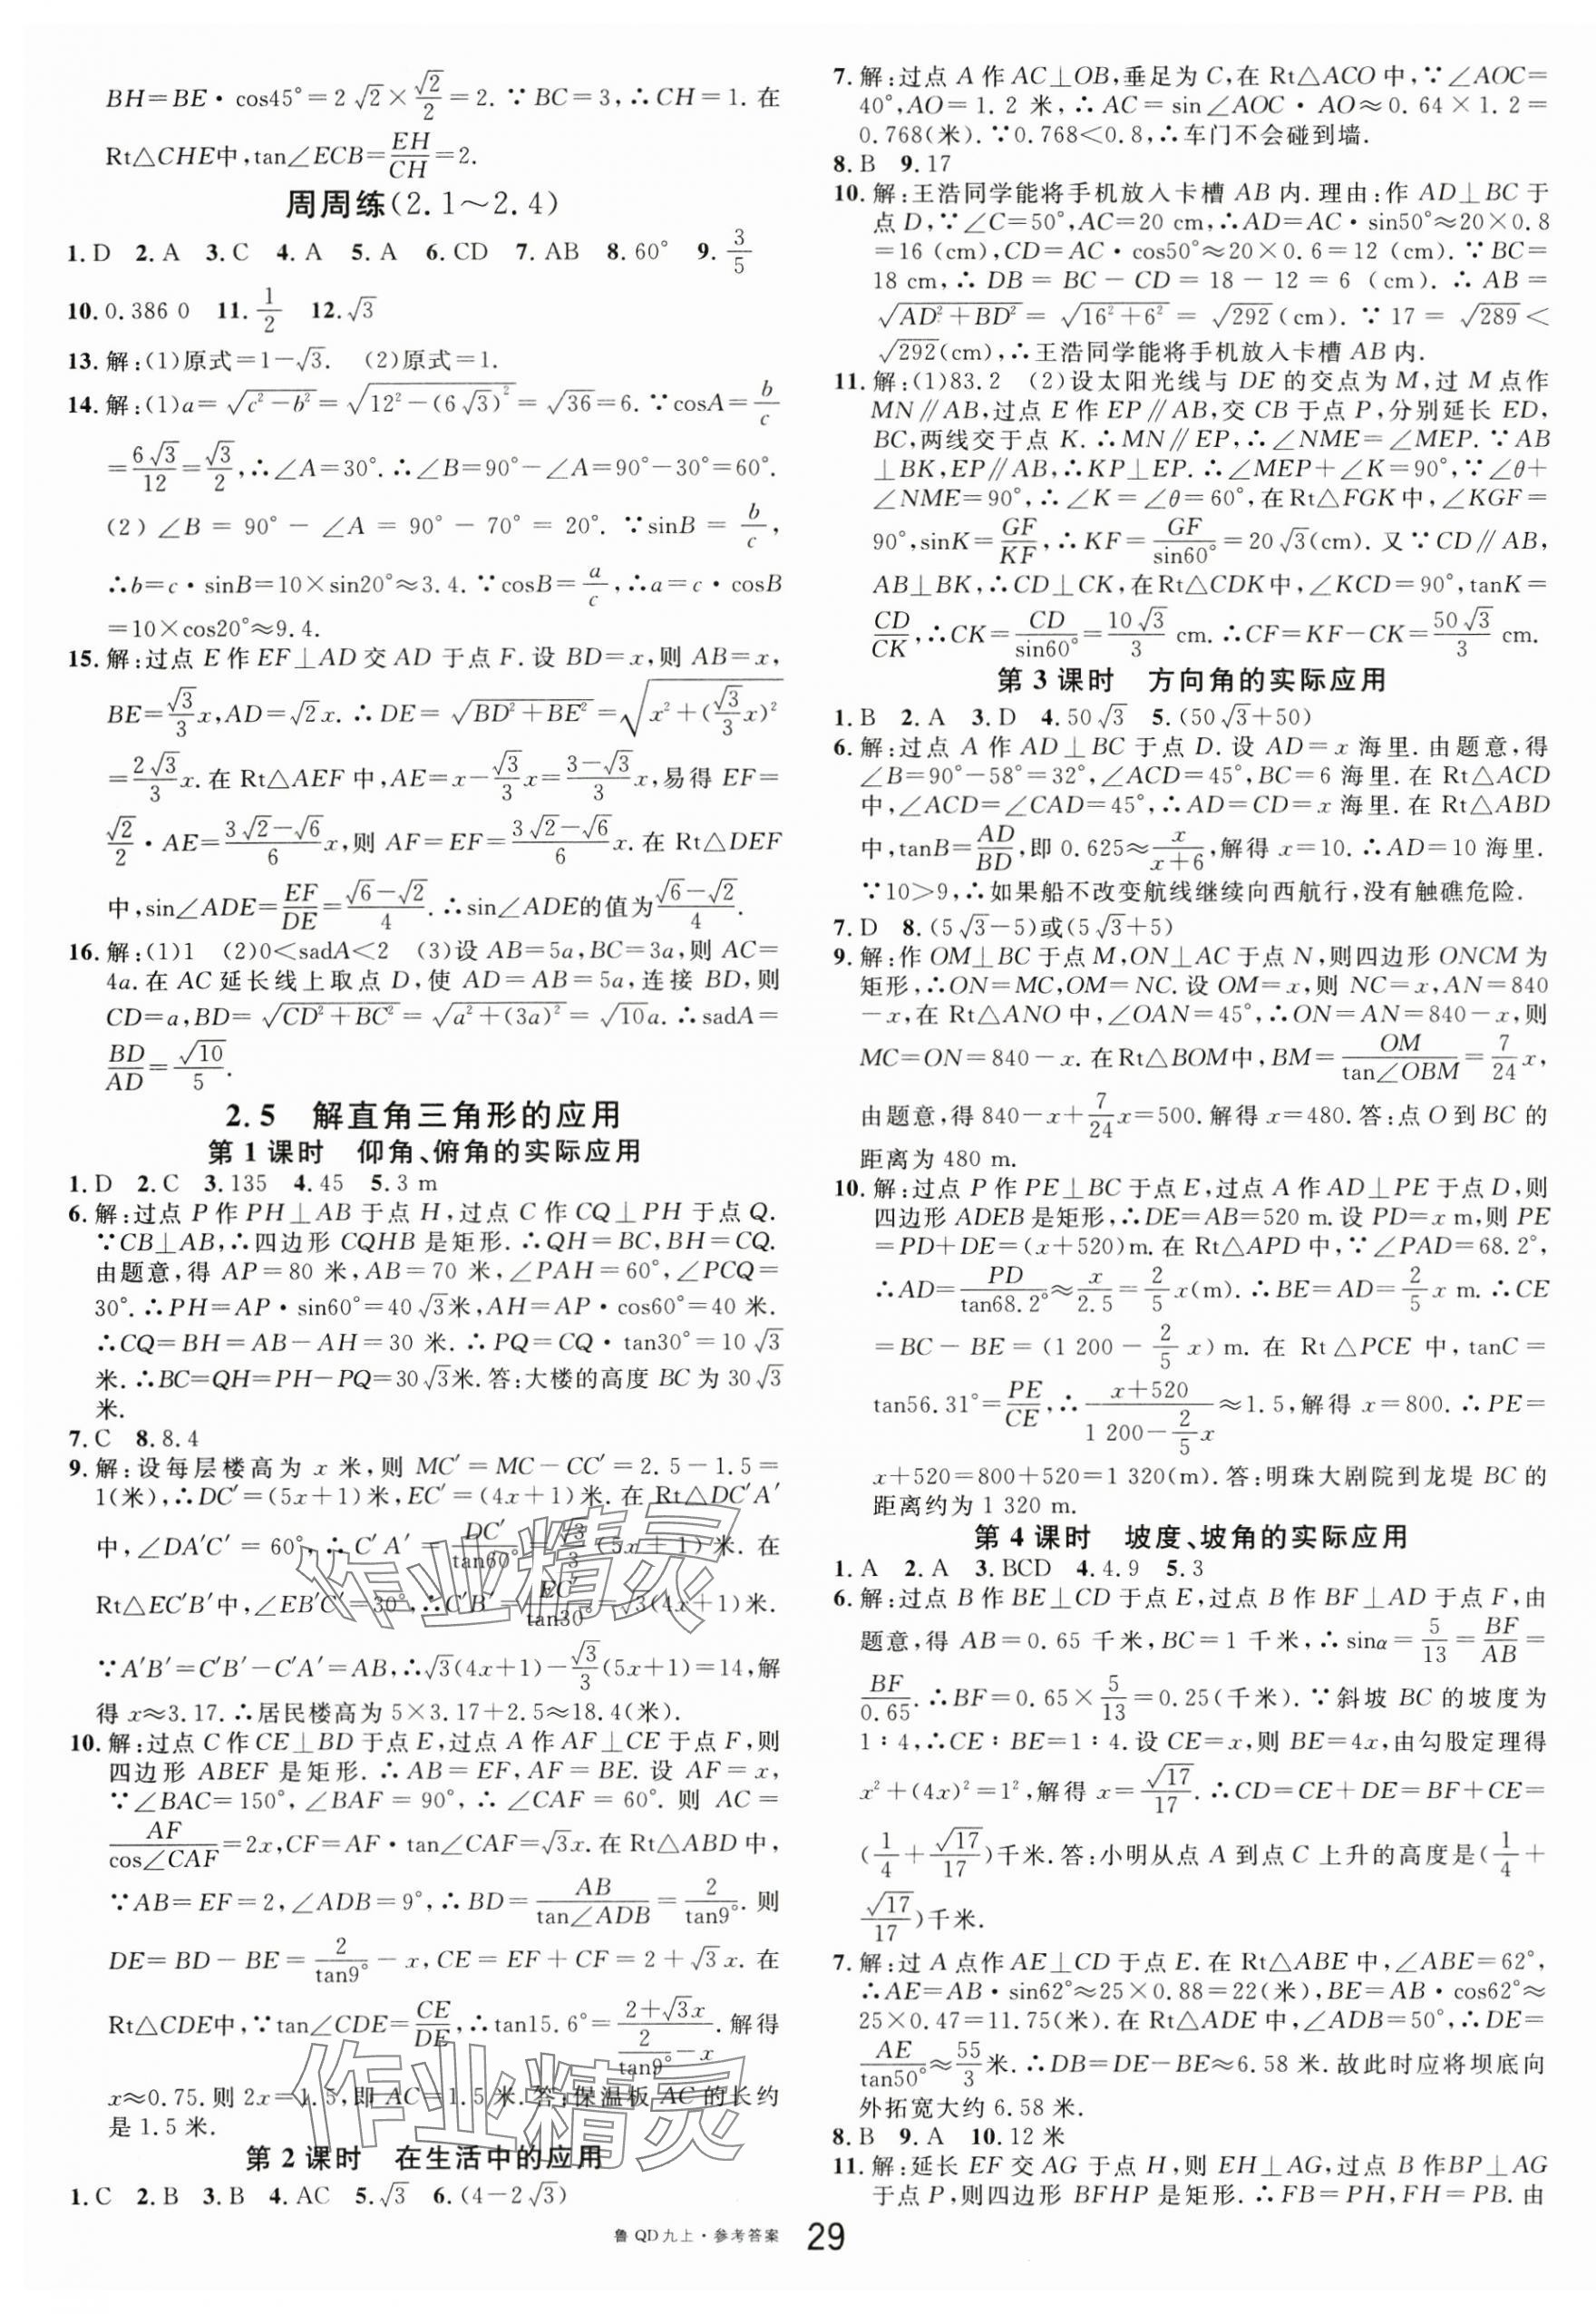 BH=BE·cos45°=2√2×√2/2=2.∵BC=3,∴CH=1.在
Rt△CHE中,tan∠ECB=EH/CH=2.
周周练(2.1～2.4)
1.D 2.A 3.C 4.A 5.A 6.CD 7.AB 8.60° 9.3/5
10.0.386 0 11.1/2 12.√3
13.解:(1)原式=1-√3. (2)原式=1.
14.解:(1)a=√(c²-b²)=√(12²-(6√3)²)=√36=6.∵cosA=b/c
=6√3/12=√3/2,∴∠A=30°.∴∠B=90°-∠A=90°-30°=60°.
(2)∠B=90°-∠A=90°-70°=20°.∵sinB=b/c,
∴b=c·sinB=10×sin20°≈3.4.∵cosB=a/c,∴a=c·cosB
=10×cos20°≈9.4.
15.解:过点E作EF⊥AD交AD于点F.设BD=x,则AB=x,
BE=√3/3x,AD=√2x.∴DE=√(BD²+BE²)=√(x²+(√3/3x)²)
=2√3/3x.在Rt△AEF中,AE=x-√3/3x=(3-√3)/3x,易得EF=
√2/2·AE=(3√2-√6)/6x,则AF=EF=(3√2-√6)/6x.在Rt△DEF
中,sin∠ADE=EF/DE=(√6-√2)/4.∴sin∠ADE的值为(√6-√2)/4.
16.解:(1)1 (2)0<sadA<2 (3)设AB=5a,BC=3a,则AC=
4a.在AC延长线上取点D,使AD=AB=5a,连接BD,则
CD=a,BD=√(CD²+BC²)=√(a²+(3a)²)=√10a.∴sadA=
BD/AD=√10/5.
2.5 解直角三角形的应用
第1课时 仰角、俯角的实际应用
1.D 2.C 3.135 4.45 5.3 m
6.解:过点P作PH⊥AB于点H,过点C作CQ⊥PH于点Q.
∵CB⊥AB,∴四边形CQHB是矩形.∴QH=BC,BH=CQ.
由题意,得AP=80米,AB=70米,∠PAH=60°,∠PCQ=
30°.∴PH=AP·sin60°=40√3米,AH=AP·cos60°=40米.
∴CQ=BH=AB-AH=30米.∴PQ=CQ·tan30°=10√3
米.∴BC=QH=PH-PQ=30√3米.答:大楼的高度BC为30√3
米.
7.C 8.8.4
9.解:设每层楼高为x米,则MC′=MC-CC′=2.5-1.5=
1(米),∴DC′=(5x+1)米,EC′=(4x+1)米.在Rt△DC′A′
中,∠DA′C′=60°,∴C′A′=DC′/tan60°=√3/3(5x+1)米.在
Rt△EC′B′中,∠EB′C′=30°,∴C′B′=EC′/tan30°=√3(4x+1)米.
∵A′B′=C′B′-C′A′=AB,∴√3(4x+1)-√3/3(5x+1)=14,解
得x≈3.17.∴居民楼高为5×3.17+2.5≈18.4(米).
10.解:过点C作CE⊥BD于点E,过点A作AF⊥CE于点F,则
四边形ABEF是矩形.∴AB=EF,AF=BE.设AF=x,
∵∠BAC=150°,∠BAF=90°,∴∠CAF=60°.则AC=
AF/cos∠CAF=2x,CF=AF·tan∠CAF=√3x.在Rt△ABD中,
∵AB=EF=2,∠ADB=9°,∴BD=AB/tan∠ADB=2/tan9°.则
DE=BD-BE=2/tan9°-x,CE=EF+CF=2+√3x.在
Rt△CDE中,∵tan∠CDE=CE/DE,∴tan15.6°=(2+√3x)/(2/tan9°-x).解得
x≈0.75.则2x=1.5,即AC=1.5米.答:保温板AC的长约
是1.5米.
第2课时 在生活中的应用
1.C 2.B 3.B 4.AC 5.√3 6.(4-2√3)
7.解:过点A作AC⊥OB,垂足为C,在Rt△ACO中,∵∠AOC=
40°,AO=1.2米,∴AC=sin∠AOC·AO≈0.64×1.2=
0.768(米).∵0.768<0.8,∴车门不会碰到墙.
8.B 9.17
10.解:王浩同学能将手机放入卡槽AB内.理由:作AD⊥BC于
点D,∵∠C=50°,AC=20 cm,∴AD=AC·sin50°≈20×0.8
=16(cm),CD=AC·cos50°≈20×0.6=12(cm).∵BC=
18 cm,∴DB=BC-CD=18-12=6(cm).∴AB=
√(AD²+BD²)=√(16²+6²)=√292(cm).∵17=√289<
√292(cm),∴王浩同学能将手机放入卡槽AB内.
11.解:(1)83.2 (2)设太阳光线与DE的交点为M,过M点作
MN∥AB,过点E作EP∥AB,交CB于点P,分别延长ED,
BC,两线交于点K.∴MN∥EP,∴∠NME=∠MEP.∵AB
⊥BK,EP∥AB,∴KP⊥EP.∴∠MEP+∠K=90°,∵∠θ+
∠NME=90°,∴∠K=∠θ=60°,在Rt△FGK中,∠KGF=
90°,sinK=GF/KF,∴KF=GF/sin60°=20√3(cm).又∵CD∥AB,
AB⊥BK,∴CD⊥CK,在Rt△CDK中,∠KCD=90°,tanK=
CD/CK,∴CK=CD/sin60°=10√3/3 cm.∴CF=KF-CK=50√3/3 cm.
第3课时 方向角的实际应用
1.B 2.A 3.D 4.50√3 5.(50√3+50)
6.解:过点A作AD⊥BC于点D.设AD=x海里.由题意,得
∠B=90°-58°=32°,∠ACD=45°,BC=6海里.在Rt△ACD
中,∠ACD=∠CAD=45°,∴AD=CD=x海里.在Rt△ABD
中,tanB=AD/BD,即0.625≈x/(x+6),解得x=10.∴AD=10海里.
∵10>9,∴如果船不改变航线继续向西航行,没有触礁危险.
7.D 8.(5√3-5)或(5√3+5)
9.解:作OM⊥BC于点M,ON⊥AC于点N,则四边形ONCM为
矩形,∴ON=MC,OM=NC.设OM=x,则NC=x,AN=840
-x,在Rt△ANO中,∠OAN=45°,∴ON=AN=840-x,则
MC=ON=840-x.在Rt△BOM中,BM=OM/tan∠OBM=7/24x,
由题意,得840-x+7/24x=500.解得x=480.答:点O到BC的
距离为480 m.
10.解:过点P作PE⊥BC于点E,过点A作AD⊥PE于点D,则
四边形ADEB是矩形,∴DE=AB=520 m.设PD=x m,则PE
=PD+DE=(x+520)m.在Rt△APD中,∵∠PAD=68.2°,
∴AD=PD/tan68.2°≈x/2.5=2/5x(m).∴BE=AD=2/5x m.∴CE
=BC-BE=(1 200-2/5x)m.在Rt△PCE中,tanC=
tan56.31°=PE/CE,∴(x+520)/(1 200-2/5x)≈1.5,解得x=800.∴PE=
x+520=800+520=1 320(m).答:明珠大剧院到龙堤BC的
距离约为1 320 m.
第4课时 坡度、坡角的实际应用
1.A 2.A 3.BCD 4.4.9 5.3
6.解:过点B作BE⊥CD于点E,过点B作BF⊥AD于点F,由
题意,得AB=0.65千米,BC=1千米,∴sinα=5/13=BF/AB=
BF/0.65.∴BF=0.65×5/13=0.25(千米).∵斜坡BC的坡度为
1∶4,∴CE∶BE=1∶4.设CE=x,则BE=4x,由勾股定理得
x²+(4x)²=1²,解得x=√17/17.∴CD=CE+DE=BF+CE=
(1/4+√17/17)千米.答:小明从点A到点C上升的高度是(1/4+
√17/17)千米.
7.解:过A点作AE⊥CD于点E.在Rt△ABE中,∠ABE=62°,
∴AE=AB·sin62°≈25×0.88=22(米),BE=AB·cos62°≈
25×0.47=11.75(米).在Rt△ADE中,∠ADB=50°,∴DE=
AE/tan50°≈55/3米.∴DB=DE-BE≈6.58米.故此时应将坝底向
外拓宽大约6.58米.
8.B 9.A 10.12米
11.解:延长EF交AG于点H,则EH⊥AG,过点B作BP⊥AG
于点P,则四边形BFHP是矩形.∴FB=PH,FH=PB.由
鲁QD九上·参考答案 29
作业精灵
作业精灵